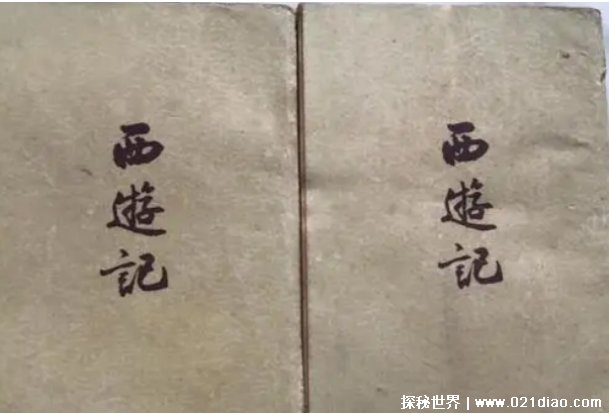 西遊記
西遊記
探秘世界 | www.021diao.com